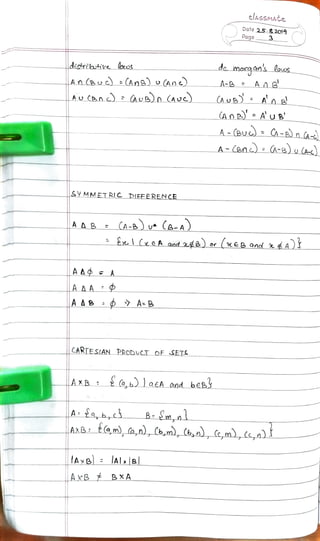 classmate
Date 25.8.2019
Page 3
distributive laws
A ∩ (B ∪ C) = (A∩B) ∪ (A∩C)
A ∪ (B∩C) = (A∪B) ∩ (A∪C)
de morgan's laws
A-B = A ∩ B'
(A∪B)' = A' ∩ B'
(A∩B)' = A' ∪ B'
A - (B∪C) = (A-B) ∩ (A-C)
A - (B∩C) = (A-B) ∪ (A-C)
SYMMETRIC DIFFERENCE
A Δ B = (A-B) ∪ (B-A)
= {x | (x∈A and x∉B) or (x∈B and x∉A)}
A Δ ∅ = A
A Δ A = ∅
A Δ B = ∅ → A=B
CARTESIAN PRODUCT OF SETS
A×B = {(a,b) | a∈A and b∈B}
A = {a,b,c} B = {m,n}
A×B = {(a,m), (a,n), (b,m), (b,n), (c,m), (c,n)}
|A×B| = |A|*|B|
A×B ≠ B×A